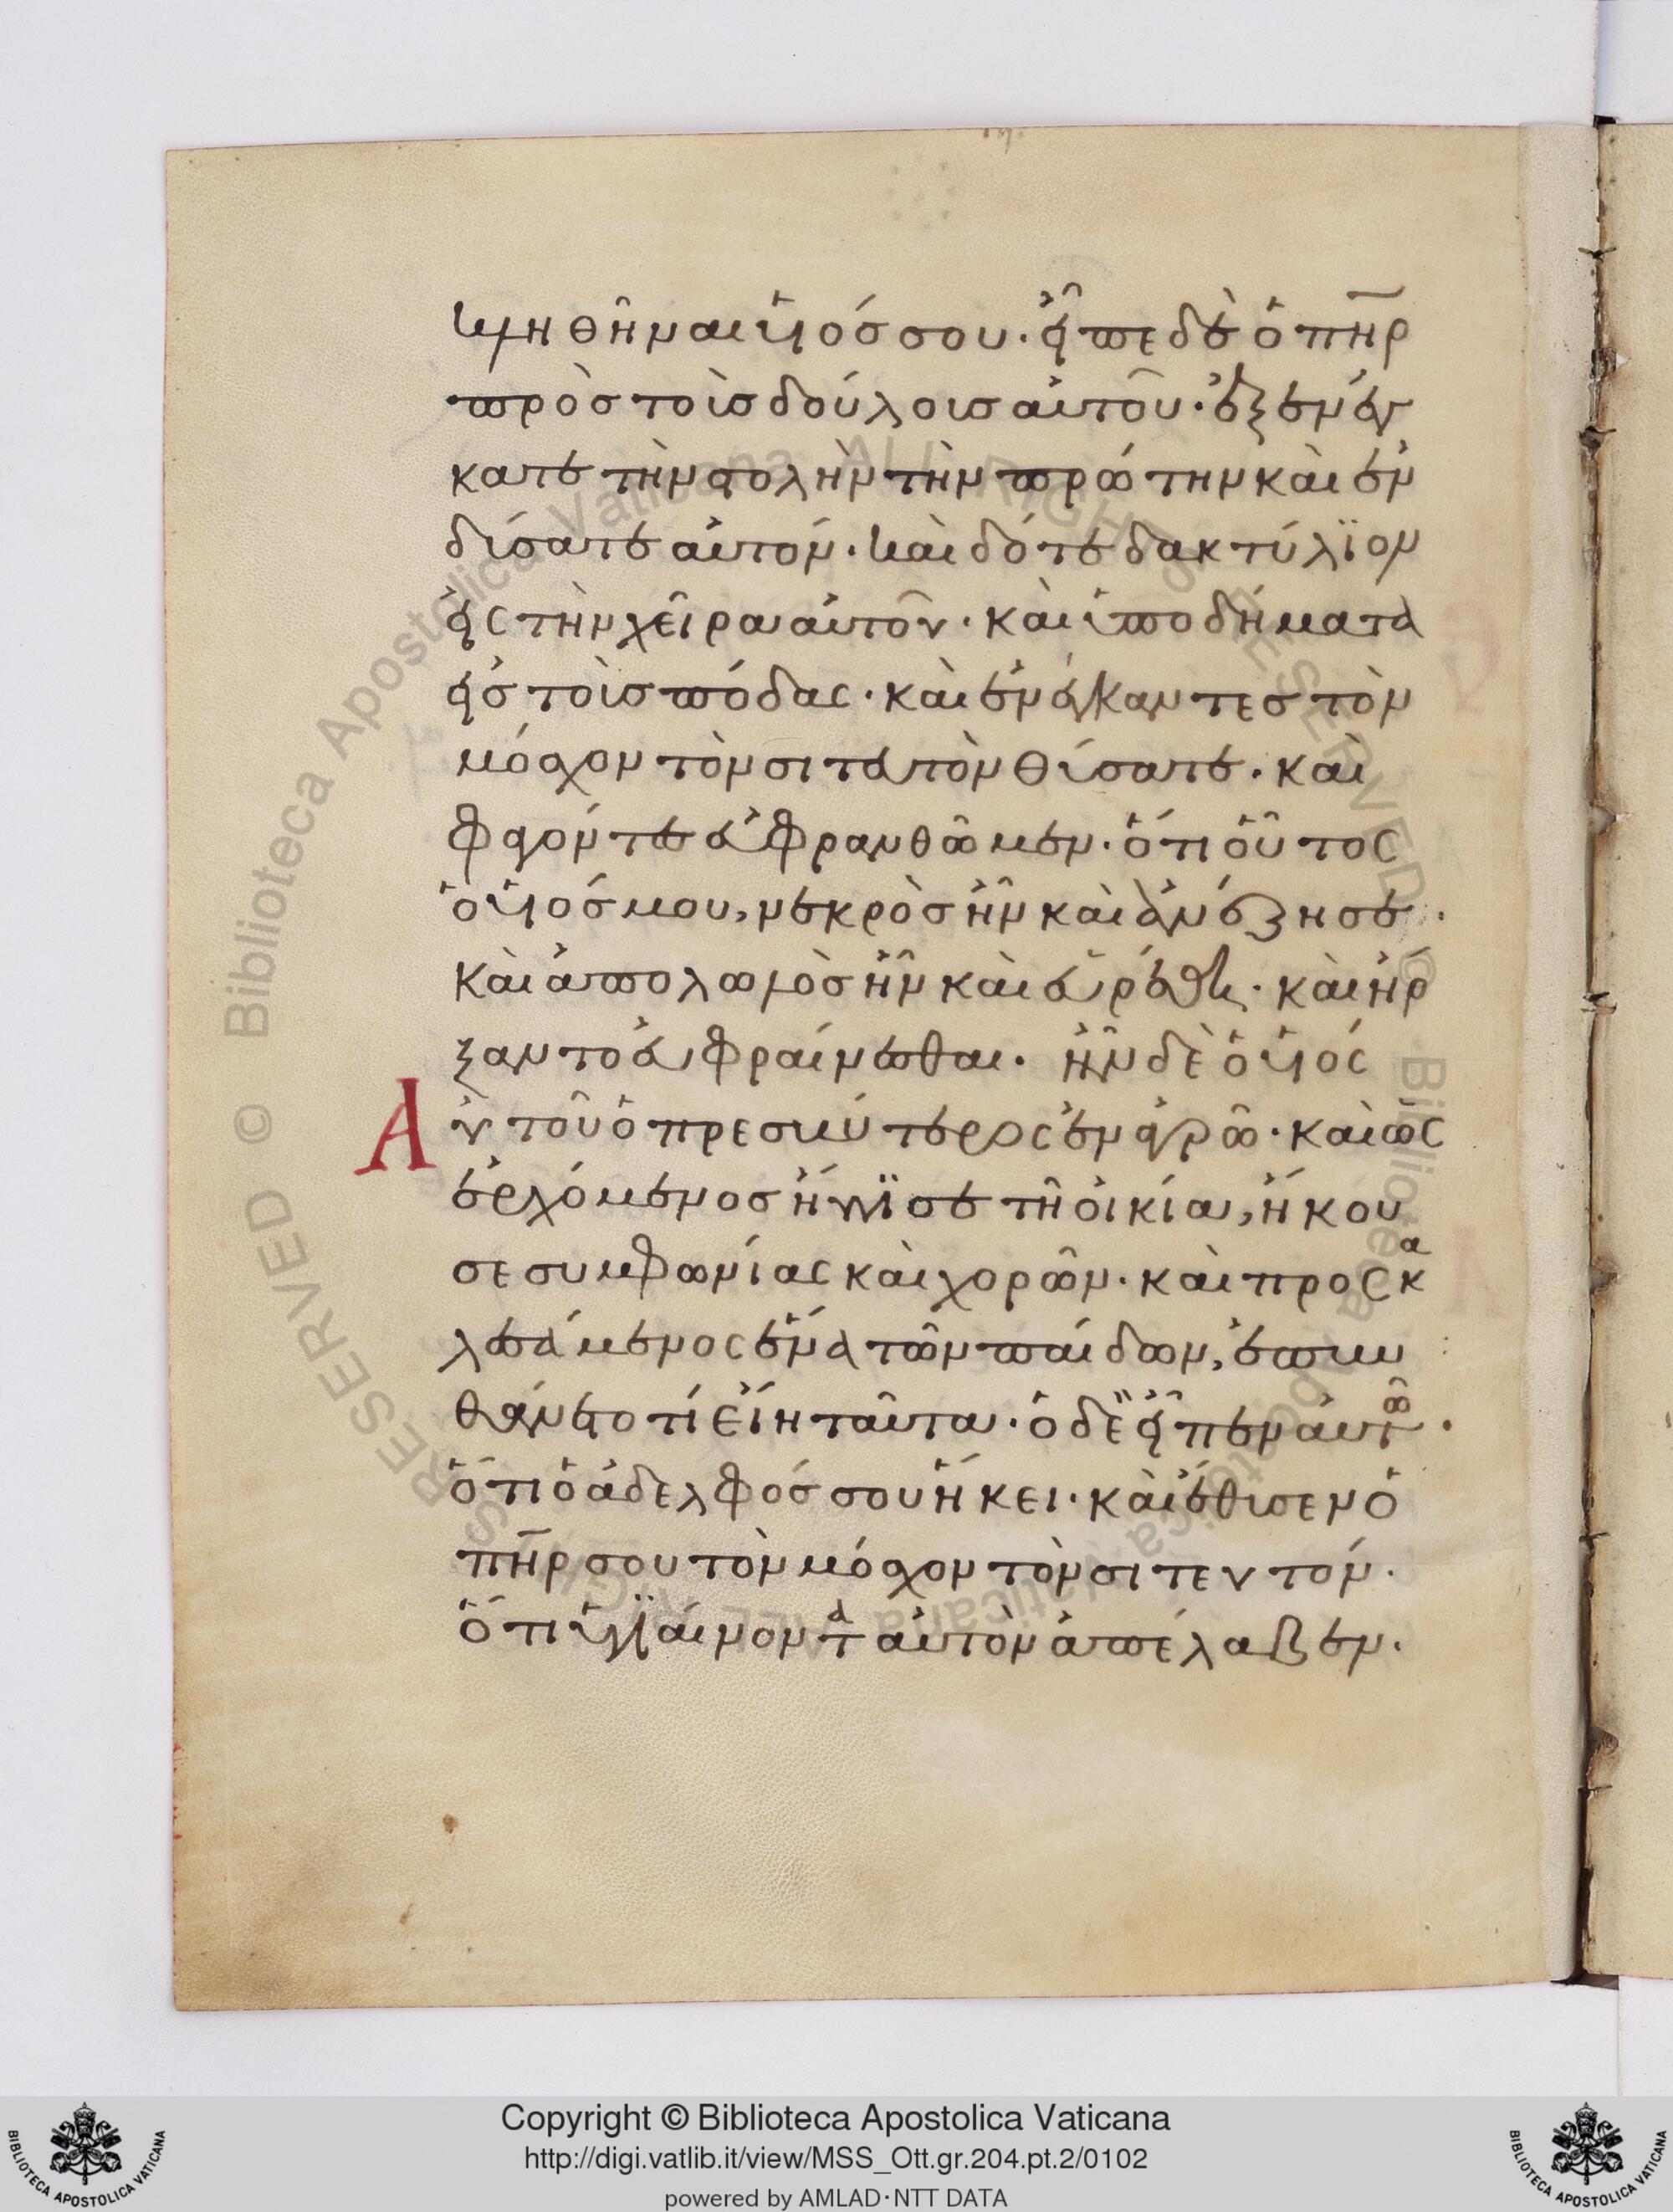 κληθῆναι υἱός σου. εἶπε δὲ ὁ πηρ
πρὸς τοὺς δούλους αὐτοῦ. ἐξενέγ
κατε τὴν στολὴν τὴν πρώτην καὶ ἐν
δύσατε αὐτόν. καὶ δότε δακτύλϊον
εἰς τὴν χεῖρα αὐτοῦ. καὶ ὑποδήματα
εἰς τοὺς πόδας. καὶ ἐνέγκαντες τὸν
μόσχον τὸν σιτευτὸν θύσατε. καὶ
φαγόντες εὐφρανθῶμεν. ὅτι οὗτος
ὁ υἱός μου, νεκρὸς ἦν καὶ ἀνέζησε.
καὶ ἀπολωλὸς ἦν καὶ εὑρέθη. καὶ ἤρ
ξαντο εὐφραίνεσθαι. ἦν δὲ ὁ υἱός
Αυτοῦ ὁ πρεσβύτερος ἐν ἀγρῶ. καὶ ὡς
ἐρχόμενος ἤγγϊσε τῆ οἰκία, ἤκου
σε συμφωνίας καὶ χορῶν. καὶ προσκα
λεσάμενος ἕνα τῶν παίδων, ἐπυν
θάνετο τί εἴη ταῦτα. ὁ δὲ εἶπεν αὐτῶ.
ὅτι ὁ ἀδελφός σου ἥκει. καὶ ἔθυσεν ὁ
πηρ σου τὸν μόσχον τὸν σιτευτόν.
ὅτι ὑγϊαίνοντα αὐτὸν ἀπέλαβεν.
Copyright © Biblioteca Apostolica Vaticana
http://digi.vatlib.it/view/MSS_Ott.gr.204.pt.2/0102
powered by AMLAD·NTT DATA